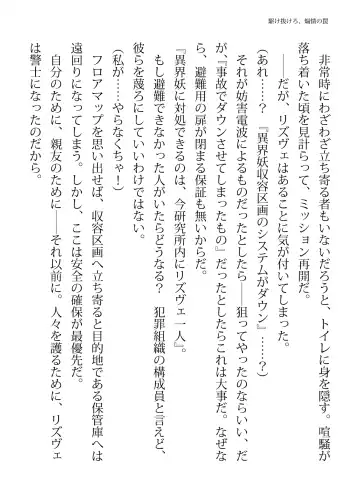 駆け抜けろ、煽情の罠
非常時にわざわざ立ち寄る者もいないだろうと、トイレに身を隠す。喧騒が
落ち着いた頃を見計らって、ミッション再開だ。
――だが、リズヴェはあることに気が付いてしまった。
(あれ……？　『異界妖収容区画のシステムがダウン』……？)
それが妨害電波によるものだったとしたら――狙ってやったのならいい、だ
が『事故でダウンさせてしまったもの』だったとしたらこれは大事だ。なぜな
ら、避難用の扉が閉まる保証も無いからだ。
『異界妖に対処できるのは、今研究所内にリズヴェ一人』。
もし避難できなかった人がいたらどうなる？　犯罪組織の構成員と言えど、
彼らを蔑ろにしていいわけではない。
(私が……やらなくちゃ！)
フロアマップを思い出せば、収容区画へ立ち寄ると目的地である保管庫へは
遠回りになってしまう。しかし、ここは安全の確保が最優先だ。
自分のために、親友のために――それ以前に。人々を護るために、リズヴェ
は警士になったのだから。